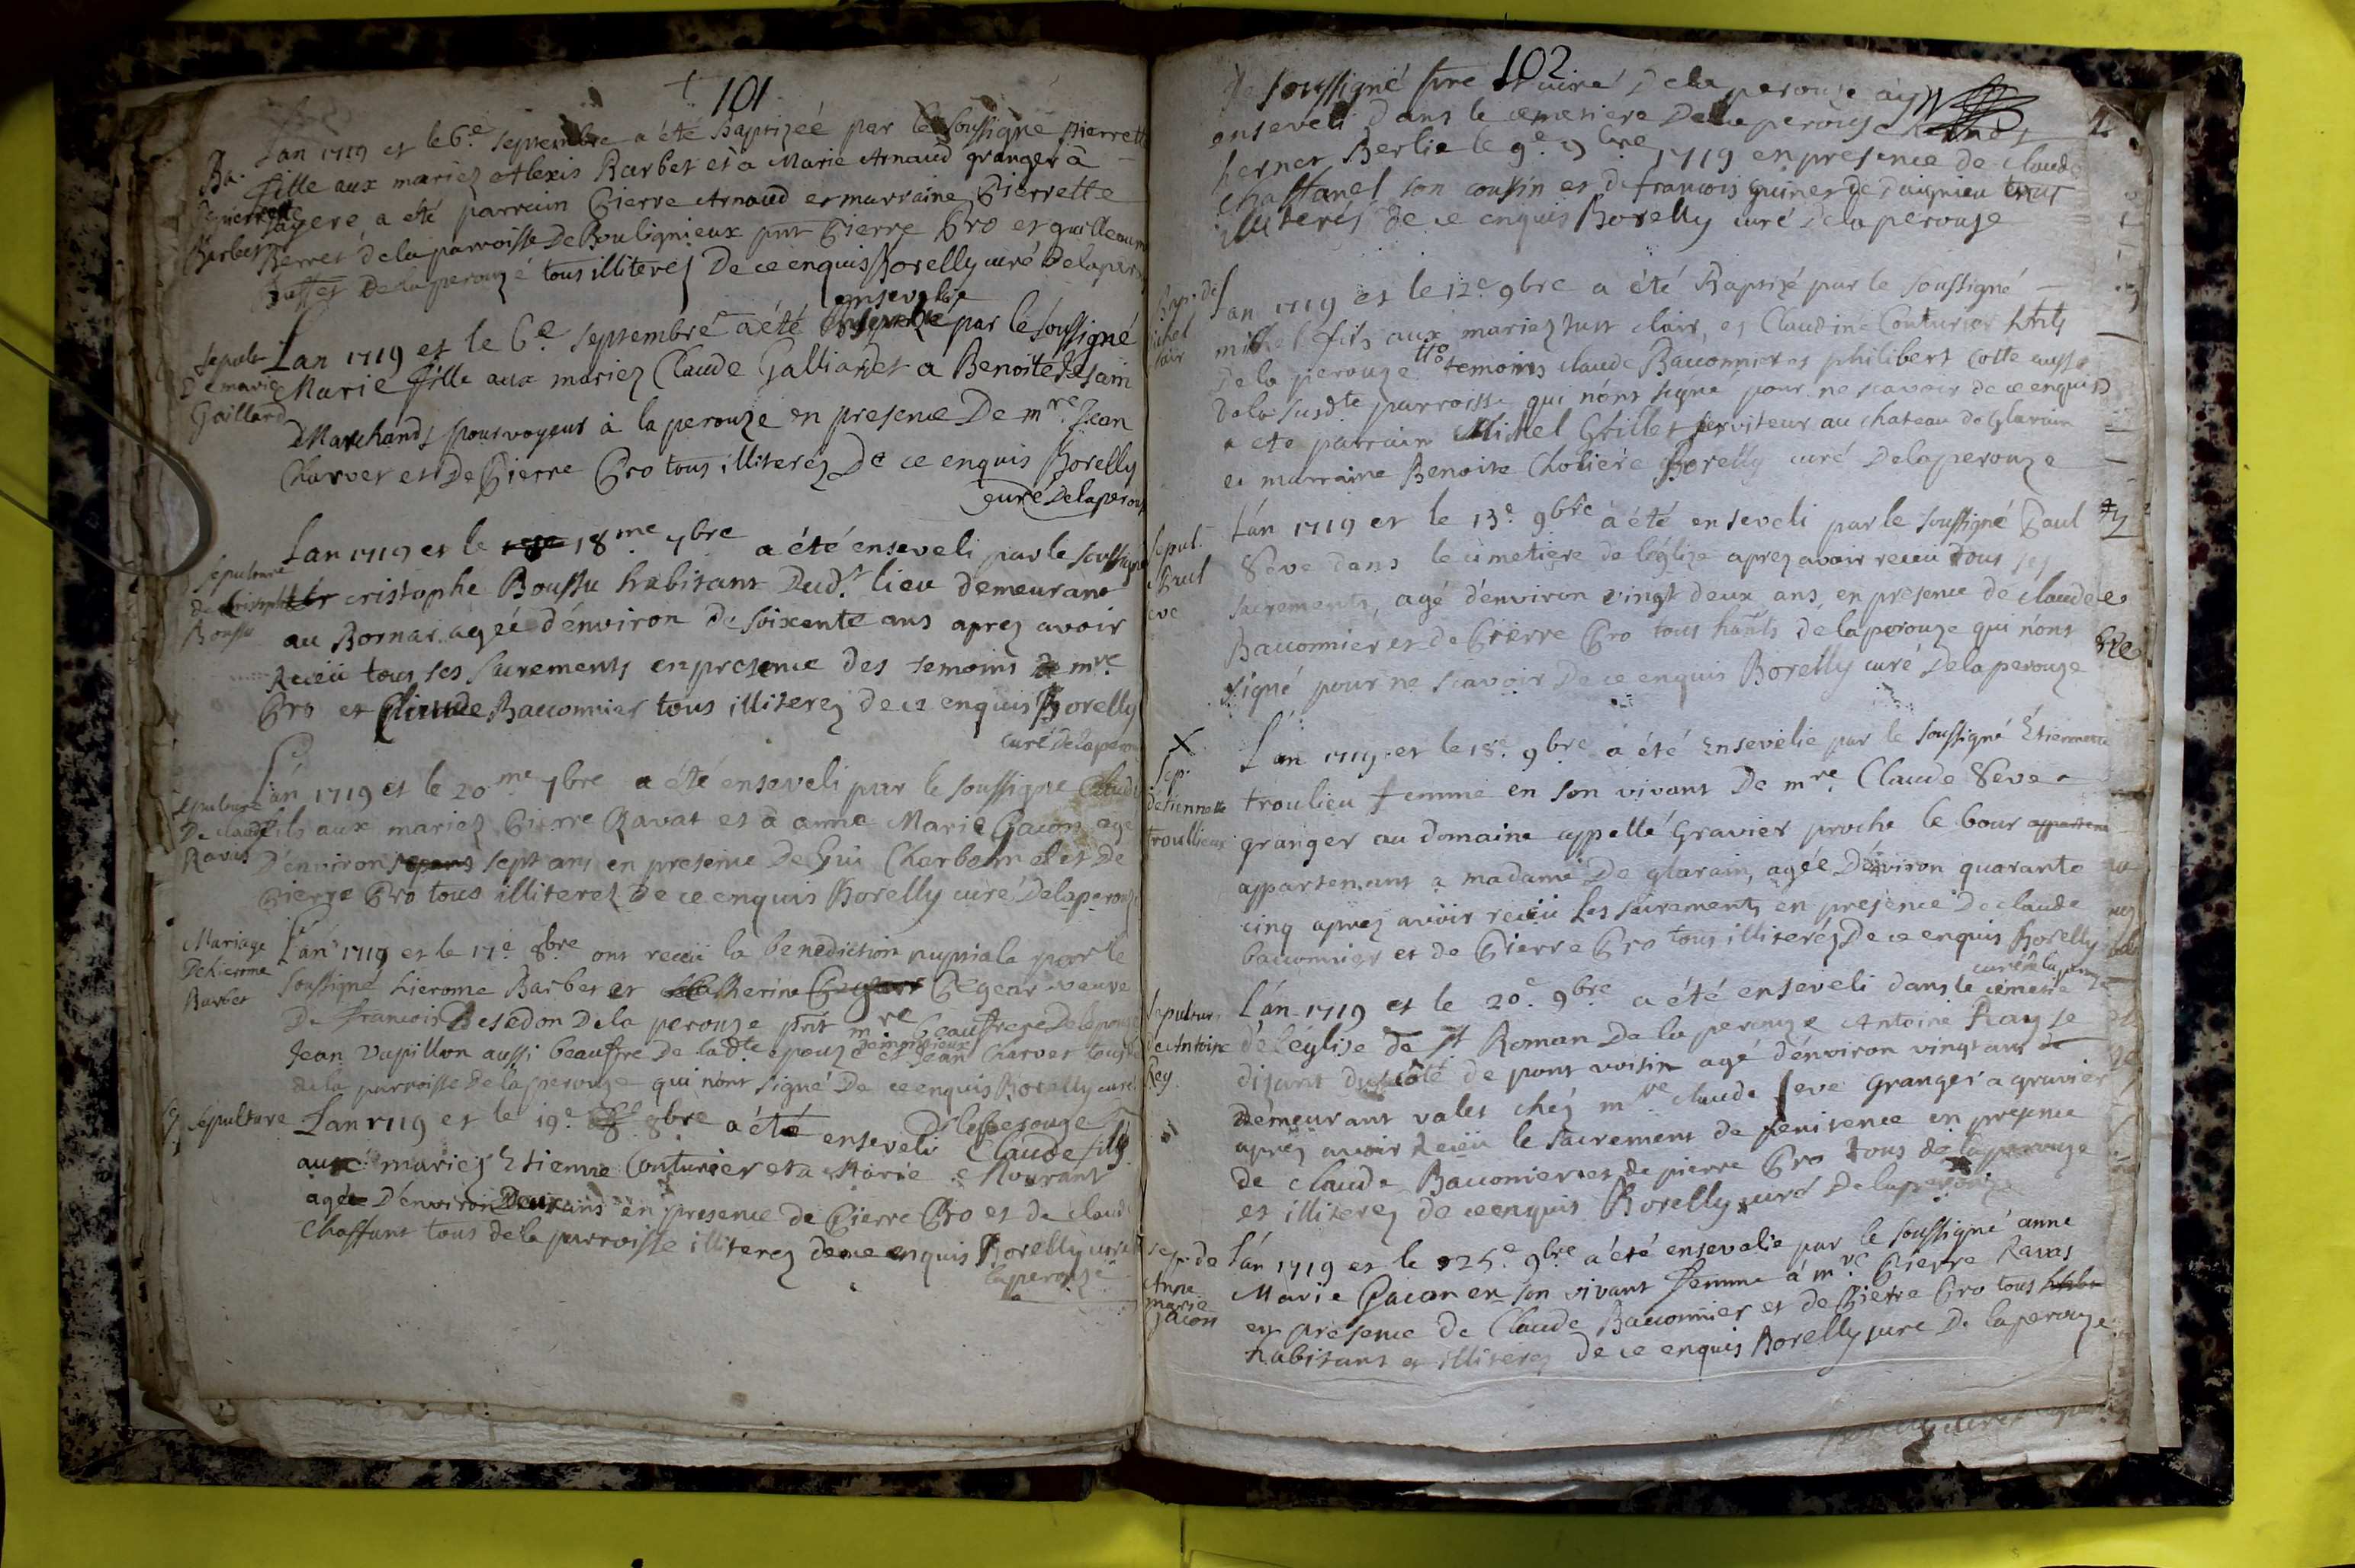 101
Ba.
pierrette
Barbet
Lan 1719 et le 6.e septembre a été Baptizeé par le soussigné pierrette
fille aux mariez Alexis Barbet et a Marie Arnaud granger à
a été parrain Pierre Arnaud et marraine Pierrette
Berret dela parroisse De Boulignieux pnt Pierre Gro et guilleaum
Buffet Delaperouze tous illiterez De ce enquis Borelly curé Delaper
Sepult
De marie
Gaillard
ensevelie
Lan 1719 et le 6.e septembre a été par le soussigné
Marie fille aux mariez Claude Galliardet a Benoite Jesain
Marchands pourvoyeur à la perouze en presence De mre. Jean
Charvet et De Pierre Gro tous illiterez De ce enquis Borelly
curé Delaperouz
sepulture
de
Boussu
Lan 1719 et le 18.me 7bre a été enseveli par le soussigné
cristophe Boussu habitant Dud.t lieu demeurant
au Bornar ageé d'énviron De soixente ans aprez avoir
Receü tous ses sacrements en presence des temoins mre.
Gro et Claude Bacconnier tous illiterez de ce enquis Borelly
curé Delaperou
sepulture
De claude
Ravat
Lán 1719 et le 20.me 7bre a été enseveli par le soussigné Claude
fils aux mariez Pierre Ravat et à anne Marie Gacon agé
D'énviron sept ans en presence De Gui Charbonnel et De
Pierre Gro tous illiterez De ce enquis Borelly curé Delaperouz
Mariage
De hierome
Barbet
Lán 1719 et le 17.e 8bre ont receü la benediction nuptiale par le
soussigné hierome Barbet et Catherine Pegeur veuve
De francois Besedon De la perouze prnt mre. beaufrere De lépouze
Jean Vapillon aussi beaufre De ladte epouze et Jean Charvet tous
De la parroisse De laperouze qui n'ont signé De ce enquis Borelly curé
De laperouze
sepulture
Lan 1719 et le 19.e 8bre a été enseveli Claude fils
aux mariez Etienne Couturier et a Marie Mourant
agée D'énviron Deux ans en presence de Pierre Gro et de claude
Chaffant tous de la parroisse illiterez de ce enquis Borelly curé
laperouze
102
Je soussigné ptre et curé Dela perouze ay
enseveli Dans le cemetiere Dela perouze
Berlie le 9.e 9bre 1719 en presence de claude
Chaffanel son cousin et de francois guinet de Daignieu tous
illiterés De ce enquis Borelly curé Dela perouze
Bap. de
michel
clair
Lan 1719 et le 12.e 9bre a été Baptizé par le soussigné
michel fils aux mariez Just clair, et Claudine Couturier hnts
De la perouze temoins claude Bacconnier et philibert cotte aussi
De la susdte parroisse qui n'ónt signé pour ne scavoir de ce enquis
a ete parrain Michel Grillet serviteur au chateau de Glarain
et marraine Benoite Choliere Borelly curé Delaperouze
sepul.
Paul
seve
Lán 1719 et le 13.e 9bre a été enseveli par le soussigné Paul
Seve dans le cimetiere de léglize aprez avoir receu tous ses
sacrements, agé d'énviron vingt deux ans, en presence de claude
Bacconnier et de Pierre Gro tous hants de laperouze qui n'ont
signé pour ne scavoir De ce enquis Borelly curé Dela perouze
X
Sep.
detiennette
troullieux
Lan 1719 et le 18.e 9bre a été Ensevelie par le soussigné Étiennette
troulieu femme en son vivant De mre. Claude Seve
granger au domaine appellé Gravier proche le bour
appartenant a madame De glarain, agée D'énviron quarante
cinq aprez avoir receü les sacrements en presence De claude
bacconnier et de Pierre Gro tous illiterés De ce enquis Borelly
curé de laperouze
sepulture
de Antoine
Rey
Lán 1719 et le 20.e 9bre a été enseveli dans le cemetie
de léglise de St Roman De la perouze Antoine Ray se
dizant du coté de pont voisin agé d'énviron vingt ans
demeurant valet chéz mre claude seve Granger a gravier
aprez avoir Receü le sacrement de penitence en presence
de claude Bacconier et de pierre Gro tous de la perouze
et illiterez de ce enquis Borelly curé De laperouze
Sep. de
Anne
marie
gacon
Lán 1719 et le 25.e 9bre a été ensevelie par le soussigné anne
Marie Gacon en son vivant femme à mre. Pierre Ravat
en presence de Claude Bacconnier et de Pierre Gro tous
habitants et illiterez de ce enquis Borelly curé De laperouze